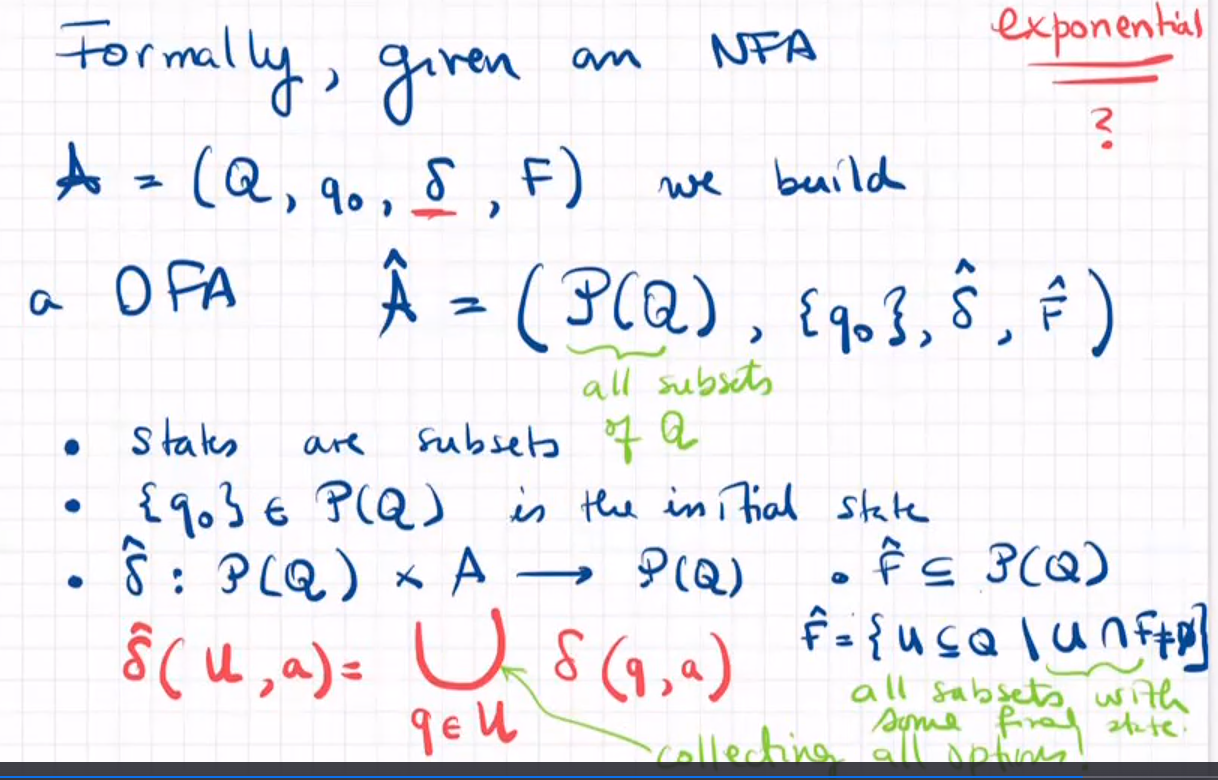 Formally, given an NFA
exponential
?
A = (Q, q₀, δ, F) we build
a DFA Â = (P(Q), {q₀}, δ̂, F̂)
all subsets
of Q
• states are subsets
• {q₀} ∈ P(Q) is the initial state
• δ̂ : P(Q) × A → P(Q) • F̂ ⊆ P(Q)
δ̂(U, a) = ⋃ δ(q, a)
q ∈ U
F̂ = {U ⊆ Q | U ∩ F ≠ ∅}
all subsets with
some final state.
collecting all options!